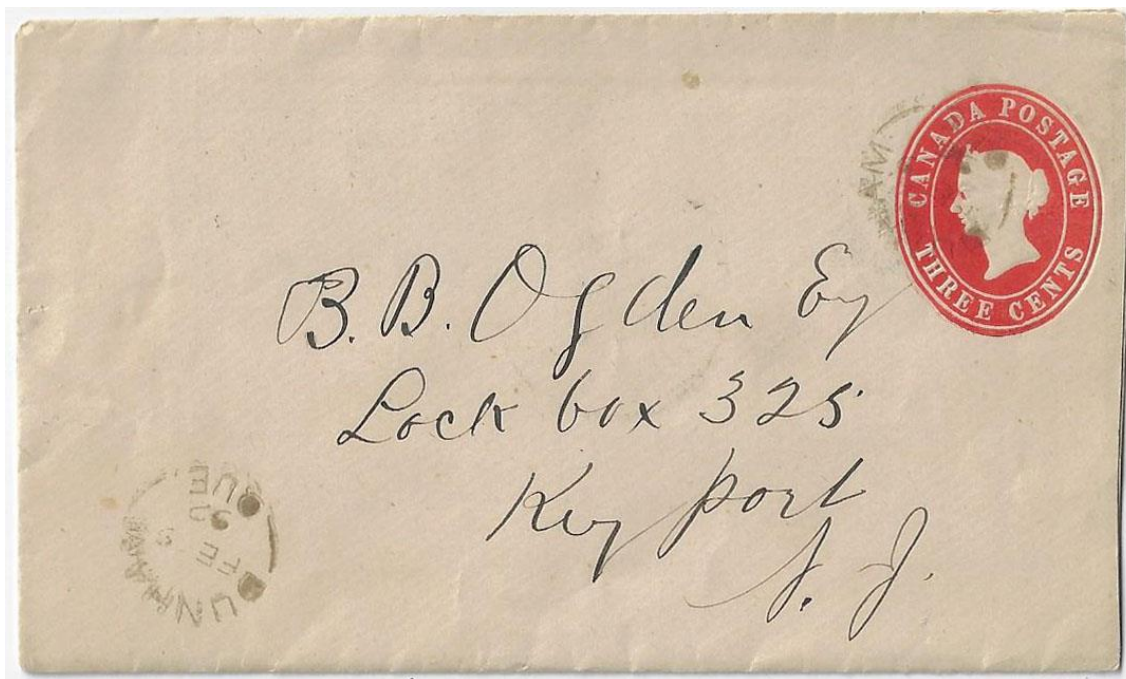 CANADA POSTAGE
THREE CENTS
AM
B. B. Ogden Esq
Lock box 325
Keyport
N. J.
DUNHAM
FE
QUE